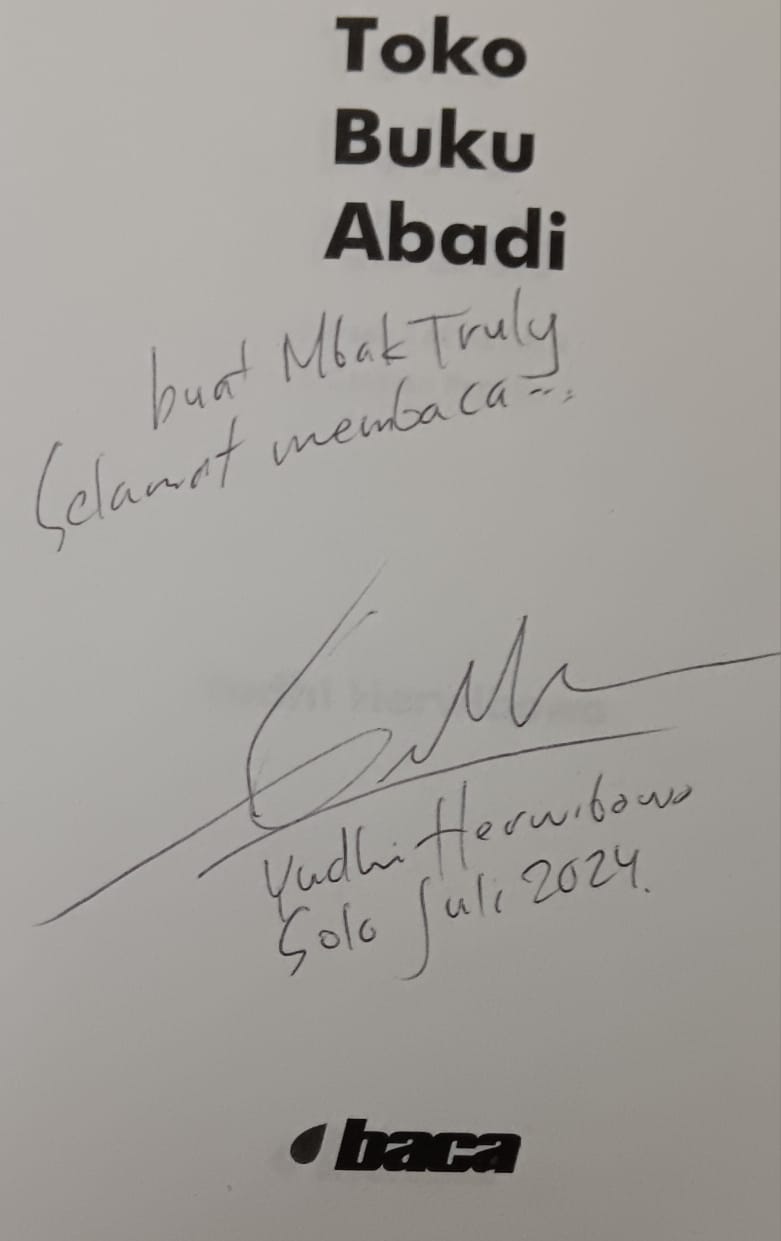 Toko
Buku
Abadi
buat Mbak Truly
Selamat membaca
Yudhi Herwibowo
Solo Juli 2024.
baca